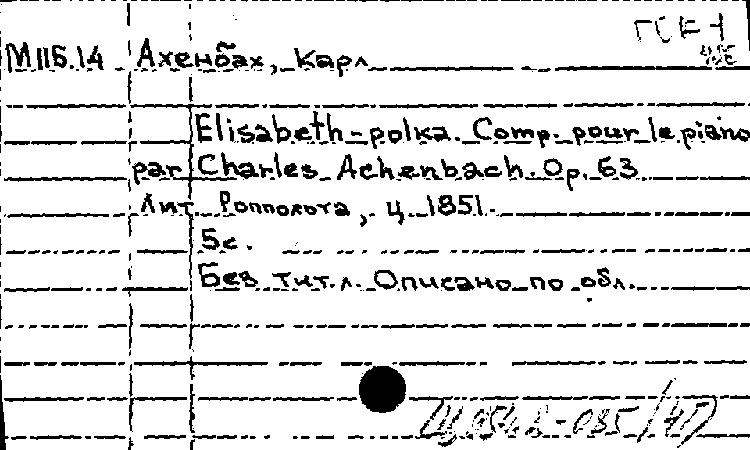 М 115.14 Ахенбах, Карл
Elisabeth-polka. Comp. pour le piano
par Charles Achenbach. Op. 63
Лит. Ропполота, ц. 1851.
5с.
Без тит.л. Описано по обл.